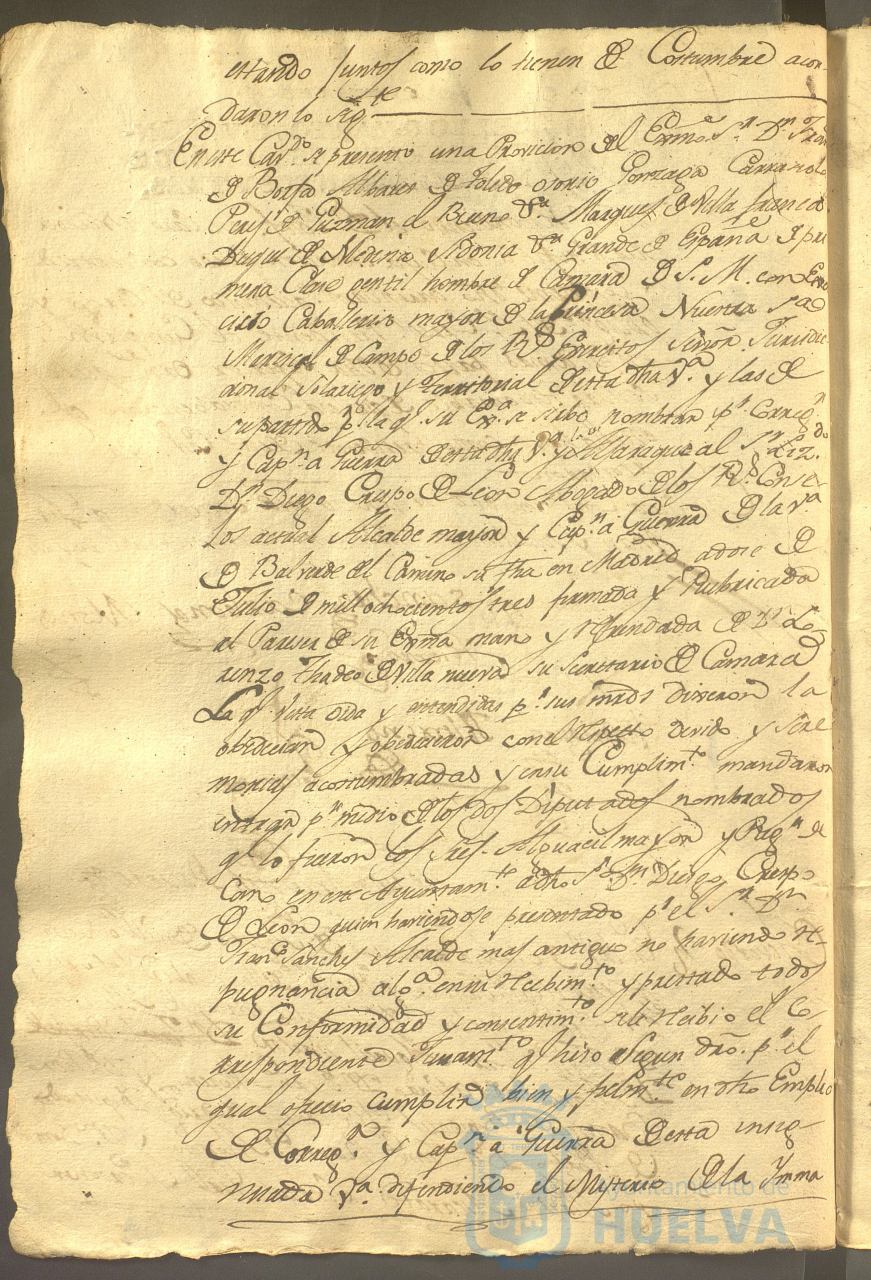 estando Juntos como lo tienen de Costumbre acor-
daron lo sigte
En este Cavdo se presento una Provicion del Exmo Sr Dn Fran
de Borja Albares de Toledo osorio Gonzaga Carraciolo
Peres de Guzman el Bueno Marques de Villa franca
Duque de Medina Sidonia Grande de España de pri
mera Clase gentil hombre de Camara de S. M. con Exer
cicio Caballeriso mayor de la Princesa Nuestra Sra
Mariscal de Campo de los Rs Exercitos Señor Jurisdic
cional Solariego y Territorial de esta dha Va y las de
su partido pr la q su Exa se sirbe nombrar pr Corregr
y Capn a Guerra de esta dha Va y Almaraque al Sr Lizdo
Dn Diego Crespo de Leon Abogado de los Rs Conse-
Jos actual Alcalde mayor y Capn a Guerra de la Va
de Balverde del Camino su fha en Madrid a dose de
Julio de mill ochocientos tres firmada y Rubricada
al Pareser de su Exma mano y refrendada de Dn Lo-
renzo Thadeo de Villa nueva su Secretario de Camara
La q vista oida y entendidas pr sus mrds dixeron la
obedecian y obedecieron con el respecto devido y sere
monias acostumbradas y en su Cumplimto mandaron
entrar pr medio de los dos Diputados nombrados
q lo fueron los Sres Alguacil mayor y Regr de
Cano en este Ayuntamto a dho Sr Dn Diego Crespo
de Leon quien haviendose presentado pr el Sr Dn
Franco Sanches Alcalde mas antiguo no haviendo re-
pugnancia alga en su recibimto y prestado todos
su Conformidad y consentimto se le recibio el Co
rrespondiente Juramto q hiso segun dro pr el
qual ofrecio cumplir bien y fielmte en dho Empleo
de Corregr y Capn a Guerra de esta insig-
nuada Va defendiendo el Misterio de la Ymma
Ayuntamiento de
HUELVA